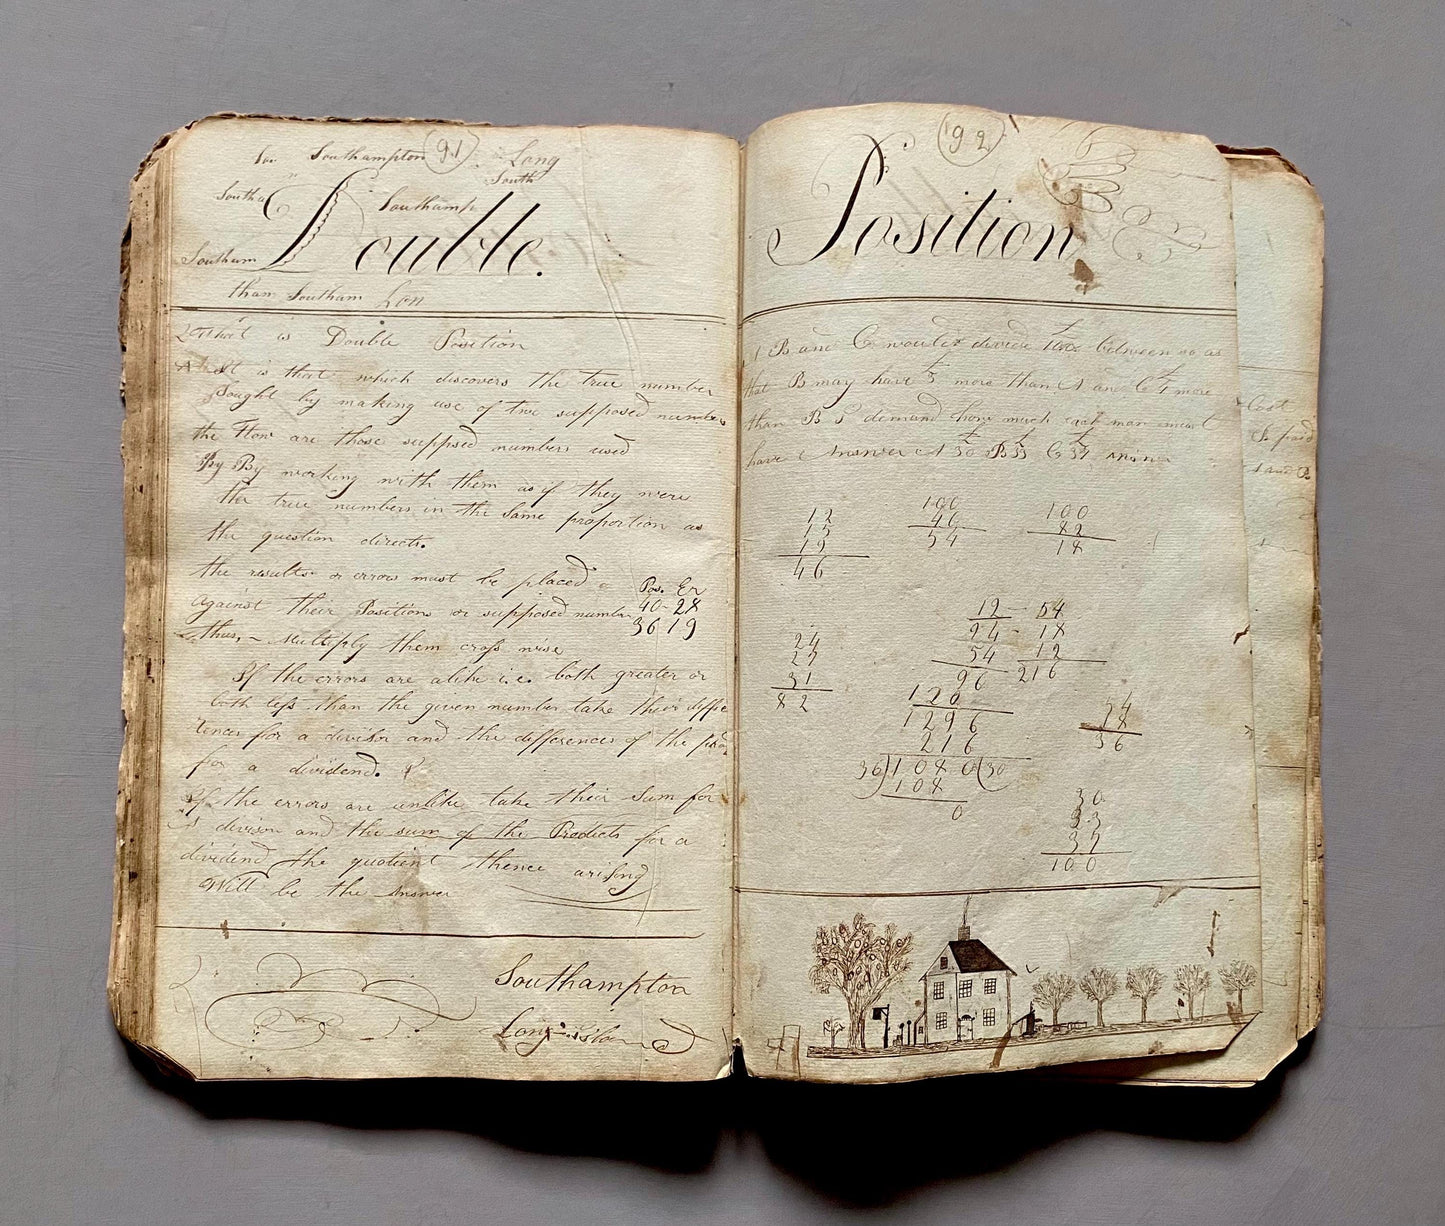 91
Southampton Long
South
South
Southamp
Double.
Southam
than Southam Lon
What is Double Position
It is that which discovers the true number
Sought by making use of two supposed numbers
the How are those supposed numbers used
By By working with them as if they were
the true numbers in the same proportion as
the question directs.
the results or errors must be placed Pos. Er
against their Positions or supposed number 40-28
thus, - Multiply them cross wise 36 19
If the errors are alike i.e. both greater or
both less than the given number take their diffe
rences for a divisor and the differences of the
for a dividend.
If the errors are unlike take their Sum for
a divison and the sum of the Products for a
dividend the quotient thence arising
Will be the Answer
Southampton
Long island
92
Position
A B and C would divide 100 between so as
that B may have 3 more than A and C 4 more
than B I demand how much each man must
have Answer A 30 B 33 C 37
12
15
19
46
100
46
54
100
82
18
24
27
31
82
12 54
24 - 18
54 12
96 216
120
1296
216
36)1080(30
108
0
54
18
36
30
33
37
100
Cost
and B